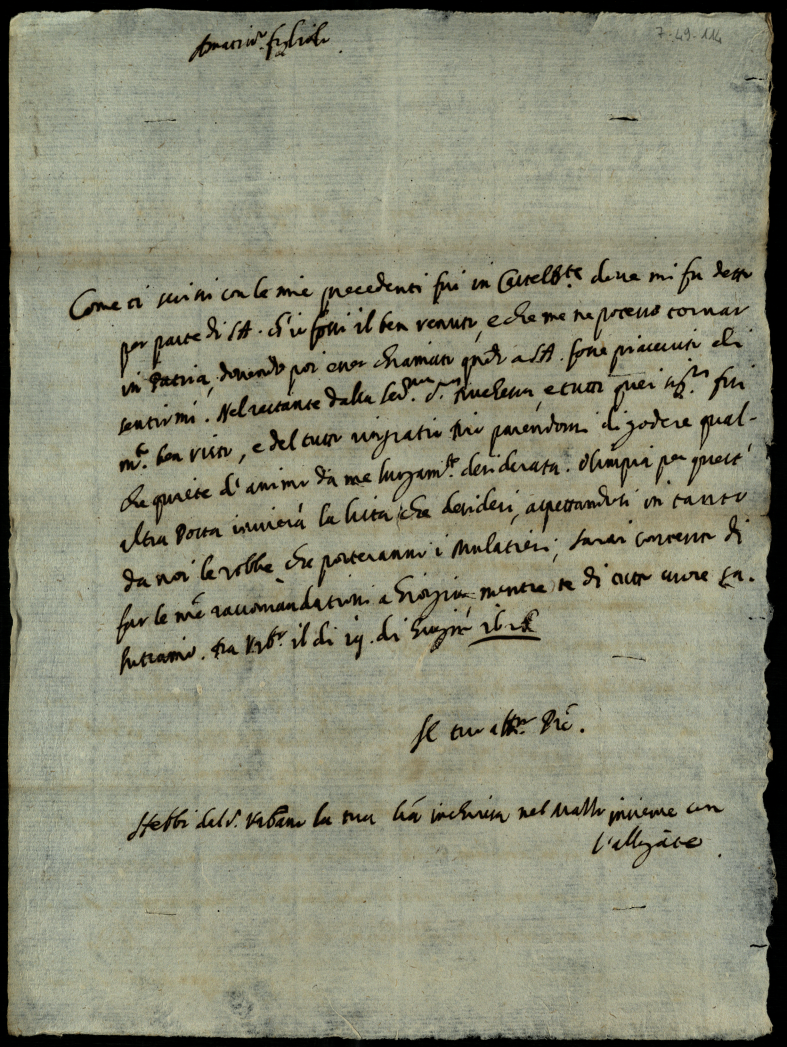 Amatiss.º figliolo
7-49-114
Come ti scrissi con le mie precedenti fui in dove mi fu detto
per parte di S.A. ch'io fossi il ben venuto, e che me ne potevo tornar
in Patria, dovendo poi esser chiamato qn̄do a S.A. fosse piaciuto di
sentirmi. Nel restante dalla Ser.ma S.ra Duchessa, e tutti quei Sig.ri fui
m.to ben visto, e del tutto ringratio Dio parendomi di godere quel-
che quiete d'animo da me lungam.te desiderata. Olimpia per quest'
altra Posta invierà la lista che desideri, aspettandosi in tanto
da noi le robbe che porteranno i Mulatieri, sarai contento di
far le mie raccomandationi a Giorgio mentre te di tutto cuore sa-
lutiamo. Da Urb.o il di 19. di Giug.o
Il tuo aff.mo P̄re.
Hebbi dal S.r Urbano la tua l̄ra inchiusa nel Mazzo insieme con
l'allegate